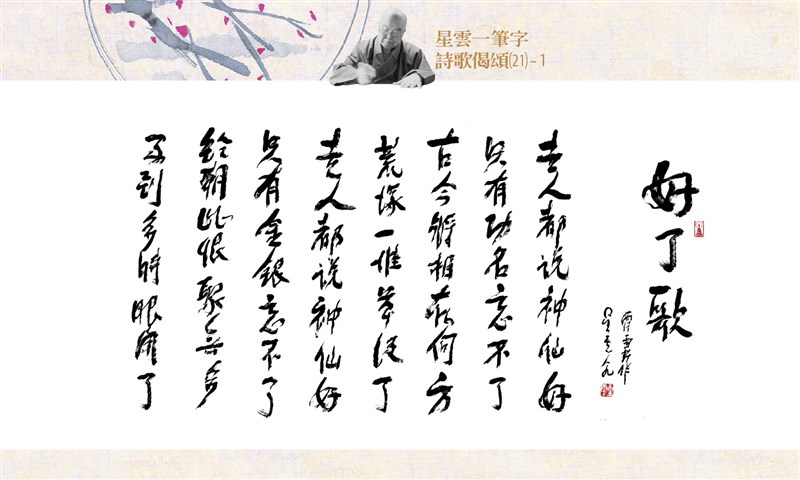 星雲一筆字
詩歌偈頌(21)–1
好了歌
曹雪芹作
星雲
世人都说神仙好
只有功名忘不了
古今將相在何方
荒塚一堆草沒了
世人都说神仙好
只有金銀忘不了
終朝此恨聚无多
及到多時眼閉了